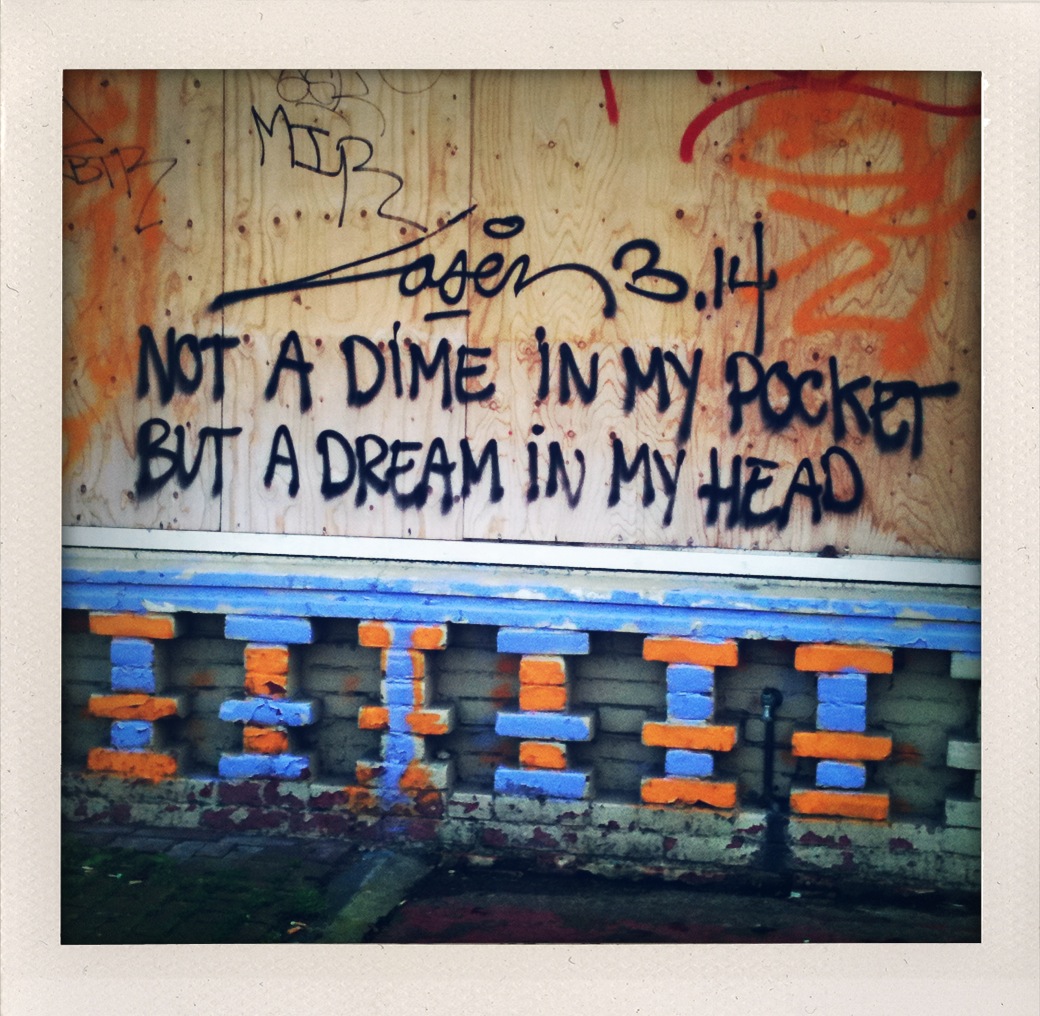 MIR
BIR
Laser 3.14
NOT A DIME IN MY POCKET
BUT A DREAM IN MY HEAD